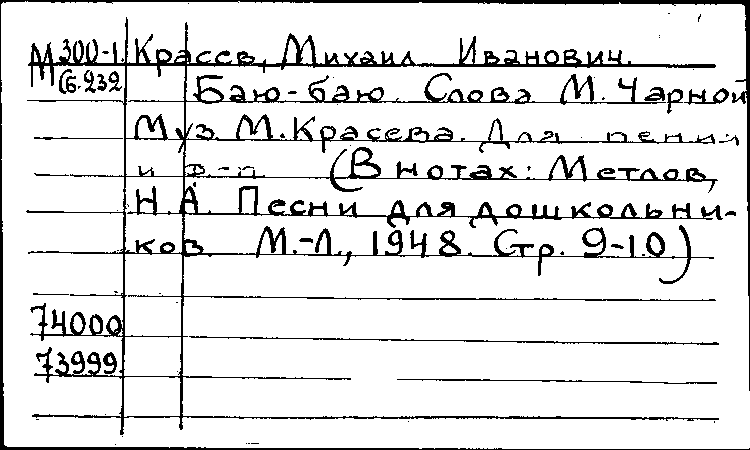 М 300-1 Красев, Михаил Иванович.
Сб. 232 Баю-баю. Слова М. Чарной
Муз. М. Красева. Для пения
и ф-п (В нотах: Метлов,
Н. А. Песни для дошкольни-
ков. М.-Л., 1948. Стр. 9-10.)
74000
73999